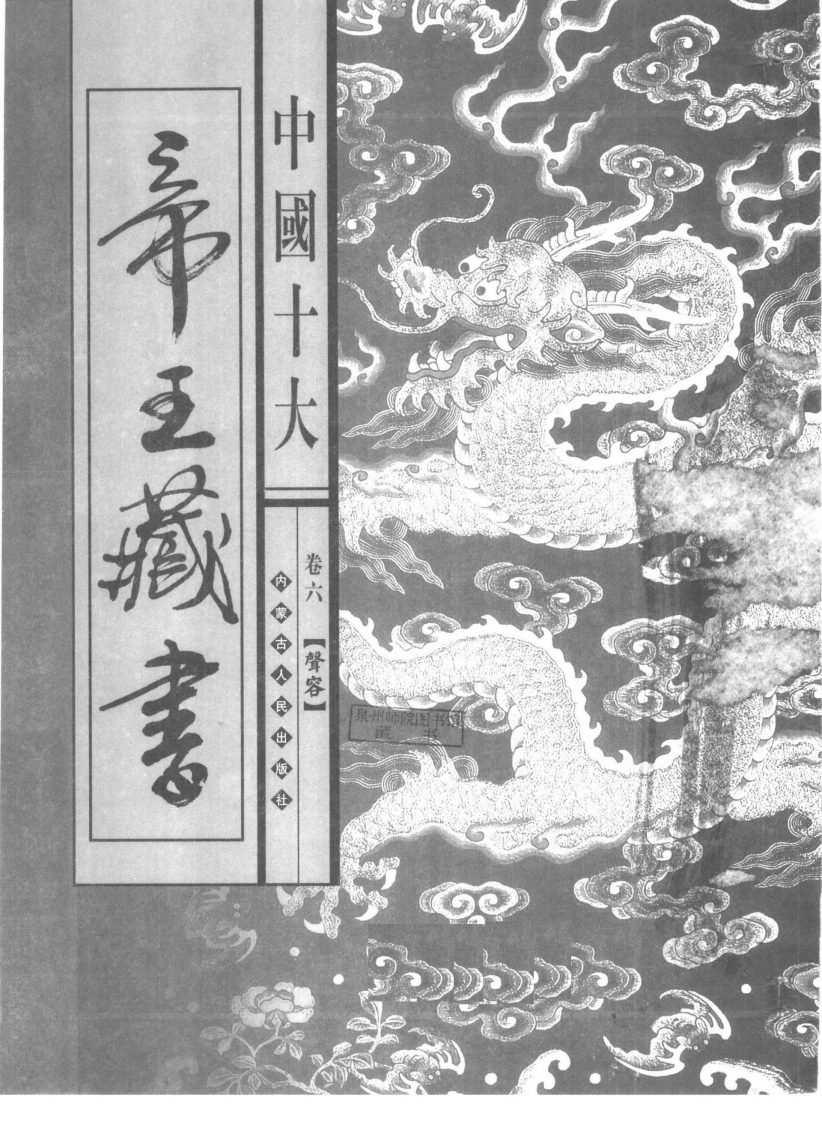 中國十大
帝王藏書
卷六【聲容】
内蒙古人民出版社
泉州师院图书馆
藏书